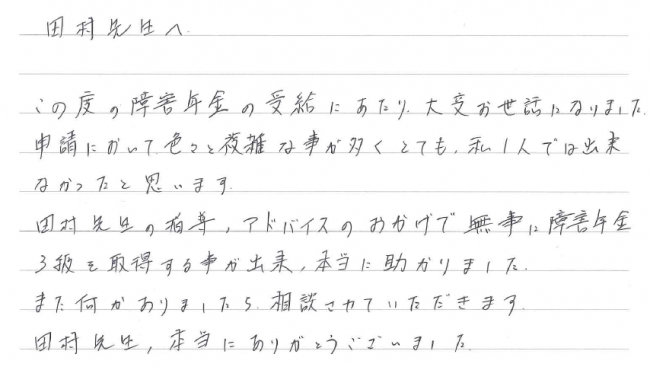 田村先生へ.
この度の障害年金の受給にあたり、大変お世話になりました.
申請において、色々と複雑な事が多くとても、私1人では出来
なかったと思います.
田村先生の指導、アドバイスのおかげで無事に障害年金
3級を取得する事が出来、本当に助かりました.
また何かありましたら、相談させていただきます.
田村先生、本当にありがとうございました.